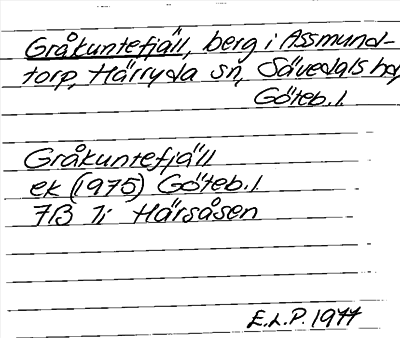 Gråkuntefjäll, berg i Assmund-
torp, Härryda sn, Sävedals hd,
Göteb. l.
Gråkuntefjäll
ek (1975) Göteb. l.
7B 7i Härsåsen
E.L.P. 1977